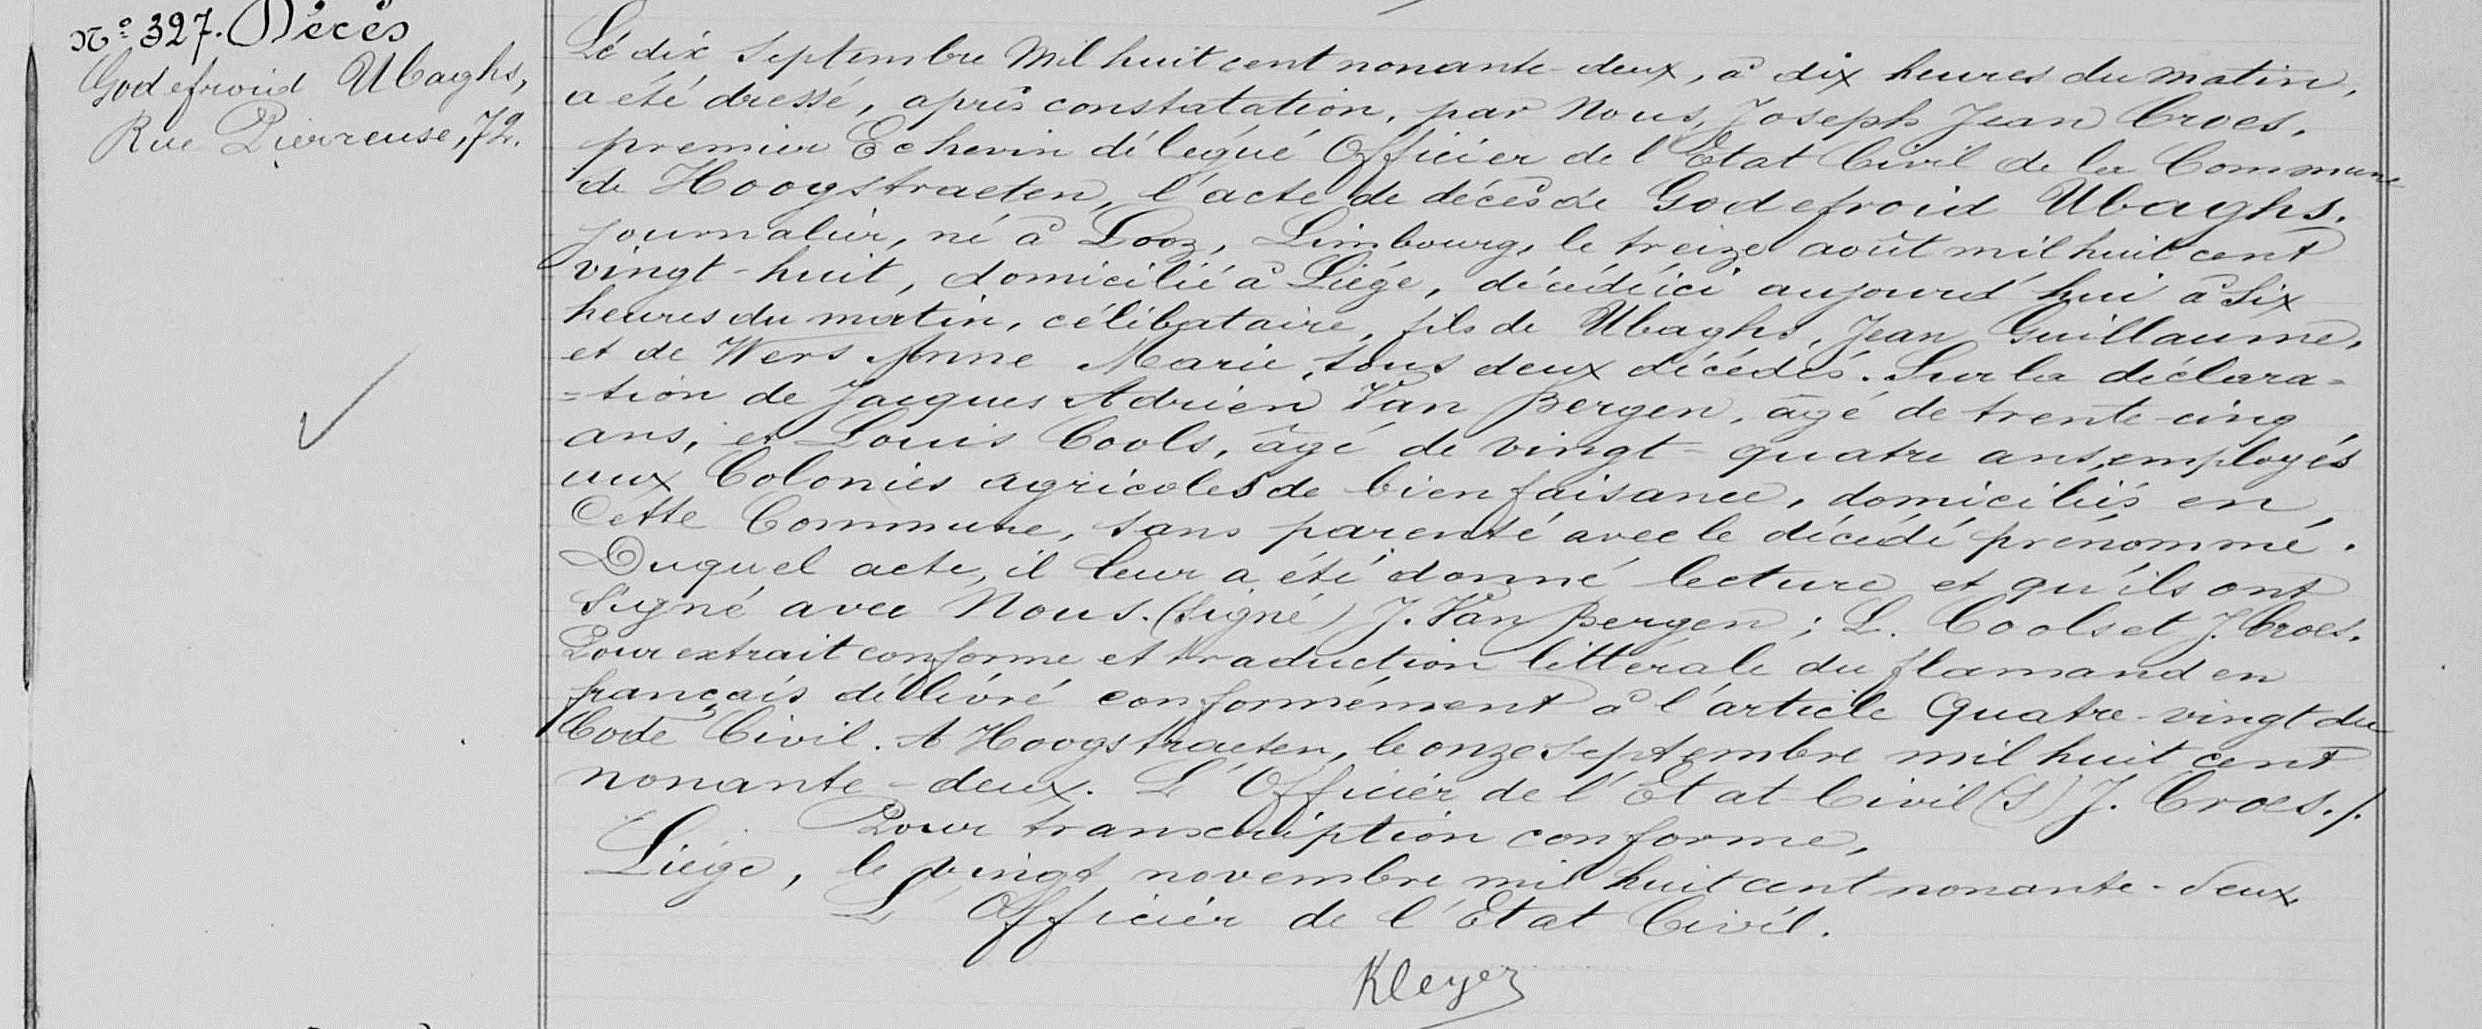 N° 327. Décès
Godefroid Ubaghs,
Rue Pierreuse, 72.
Le dix Septembre Mil huit cent nonante-deux, à dix heures du matin,
a été dressé, après constatation, par Nous, Joseph Jean Croes,
premier Echevin délégué Officier de l'Etat Civil de la Commune
de Hoogstraeten, l'acte de décès de Godefroid Ubaghs.
journalier, né à Looz, Limbourg, le treize août mil huit cent
vingt-huit, domicilié à Liége, décédé ici aujourd'hui à Six
heures du matin, célibataire, fils de Ubaghs, Jean Guillaume,
et de Wers Anne Marie, tous deux décédés. Sur la déclara=
=tion de Jacques Adrien Van Bergen, âgé de trente-cinq
ans, et Louis Cools, âgé de vingt-quatre ans, employés
aux Colonies agricoles de bienfaisance, domiciliés en
Cette Commune, sans parenté avec le décédé prénommé.
Duquel acte, il leur a été donné lecture et qu'ils ont
Signé avec Nous. (Signé) J. Van Bergen; L. Cools et J. Croes.
Pour extrait conforme et traduction littérale du flamand en
français délivré conformément à l'article Quatre-vingt du
Code Civil. A Hoogstraeten, le onze septembre mil huit cent
nonante-deux. L'Officier de l'Etat-Civil (S) J. Croes./.
Pour transcription conforme,
Liége, le vingt novembre mil huit cent nonante-deux
L'Officier de l'Etat Civil.
Kleyer